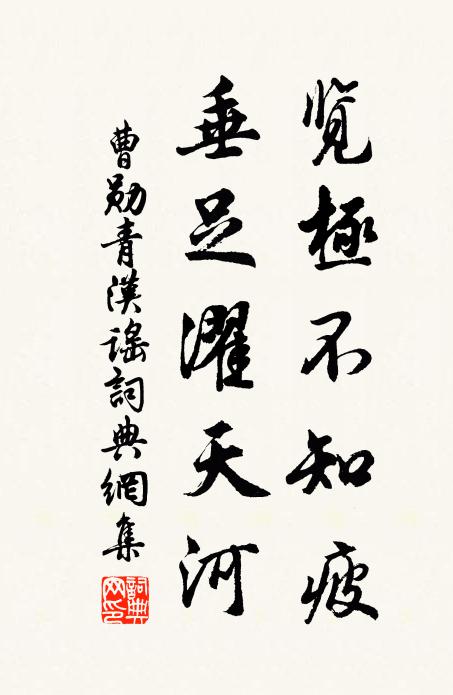 览極不知疲
垂足濯天河
曹勋青漢謠詞典網集
詞典网印